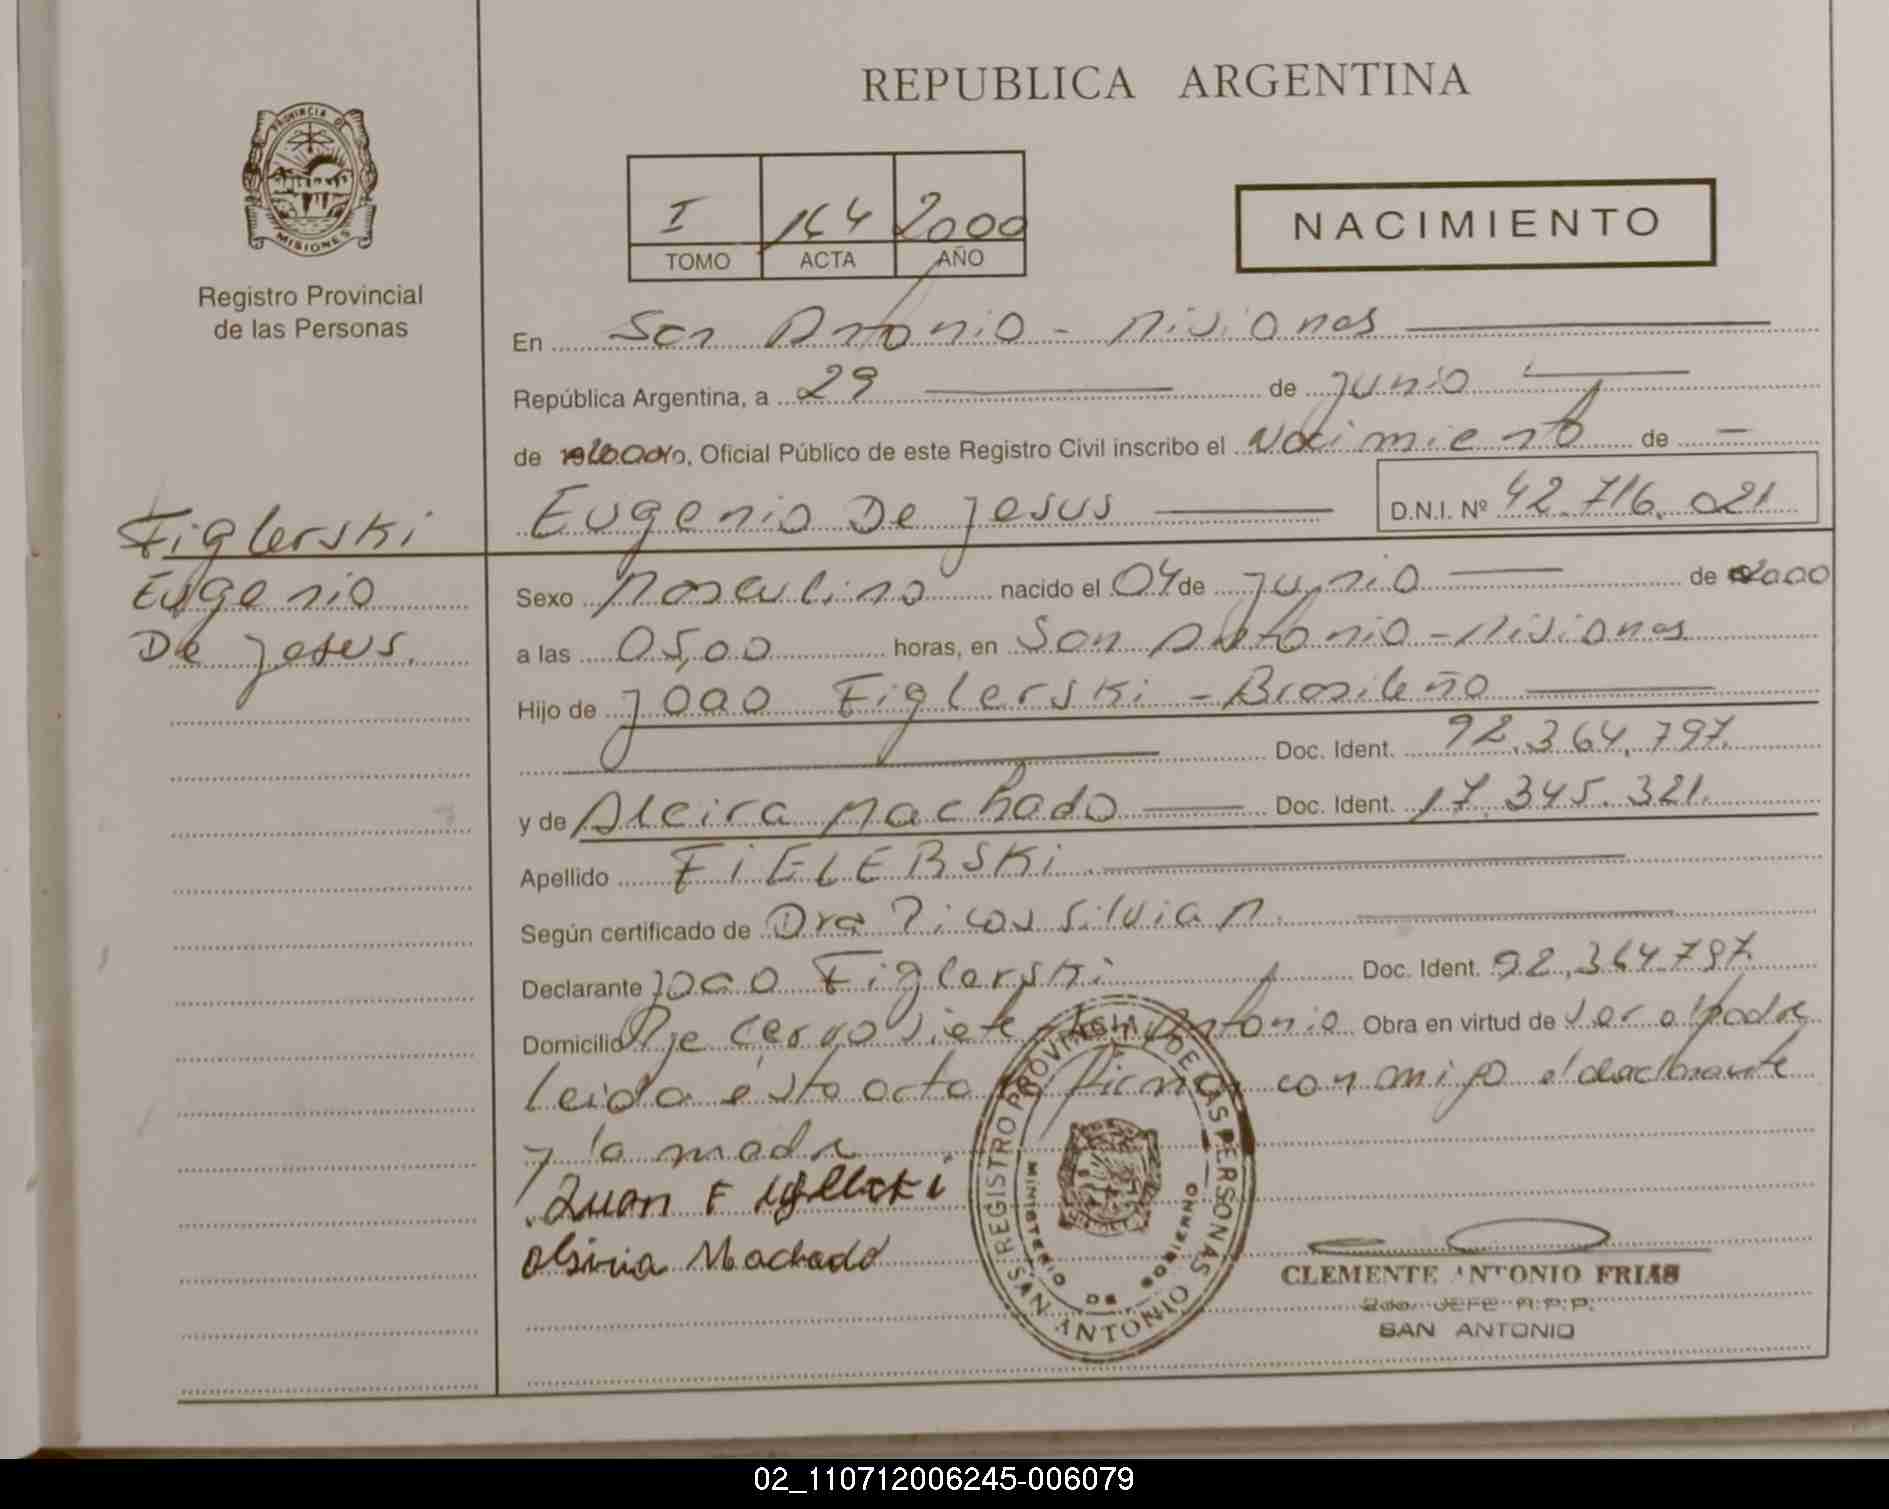 REPUBLICA ARGENTINA
PROVINCIA DE
MISIONES
Registro Provincial
de las Personas
I 164 2000
TOMO ACTA AÑO
NACIMIENTO
En San Antonio - Misiones
República Argentina, a 29 de junio
de Oficial Público de este Registro Civil inscribo el Nacimiento de -
Eugenio De Jesus D.N.I. Nº 42.716.021
Figlerski
Eugenio
De Jesus.
Sexo Masculino nacido el 04 de junio de 2000
a las 05,00 horas, en San Antonio - Misiones
Hijo de Joao Figlerski - Brasileño
Doc. Ident. 92.364.797.
y de Alcira Machado Doc. Ident. 17.345.321.
Apellido FIGLERSKi.
Según certificado de Dra Picos Silvia N.
Declarante Joao Figlerski Doc. Ident. 92.364.797.
Domicilio Pje Cerro siete San Antonio Obra en virtud de ser el padre
Leida esta acta firman conmigo el declarante
y la madre
Juan F
Machado
REGISTRO PROVINCIAL DE LAS PERSONAS
MINISTERIO DE GOBIERNO
SAN ANTONIO
CLEMENTE ANTONIO FRIAS
2do. JEFE R.P.P.
SAN ANTONIO
02_110712006245-006079